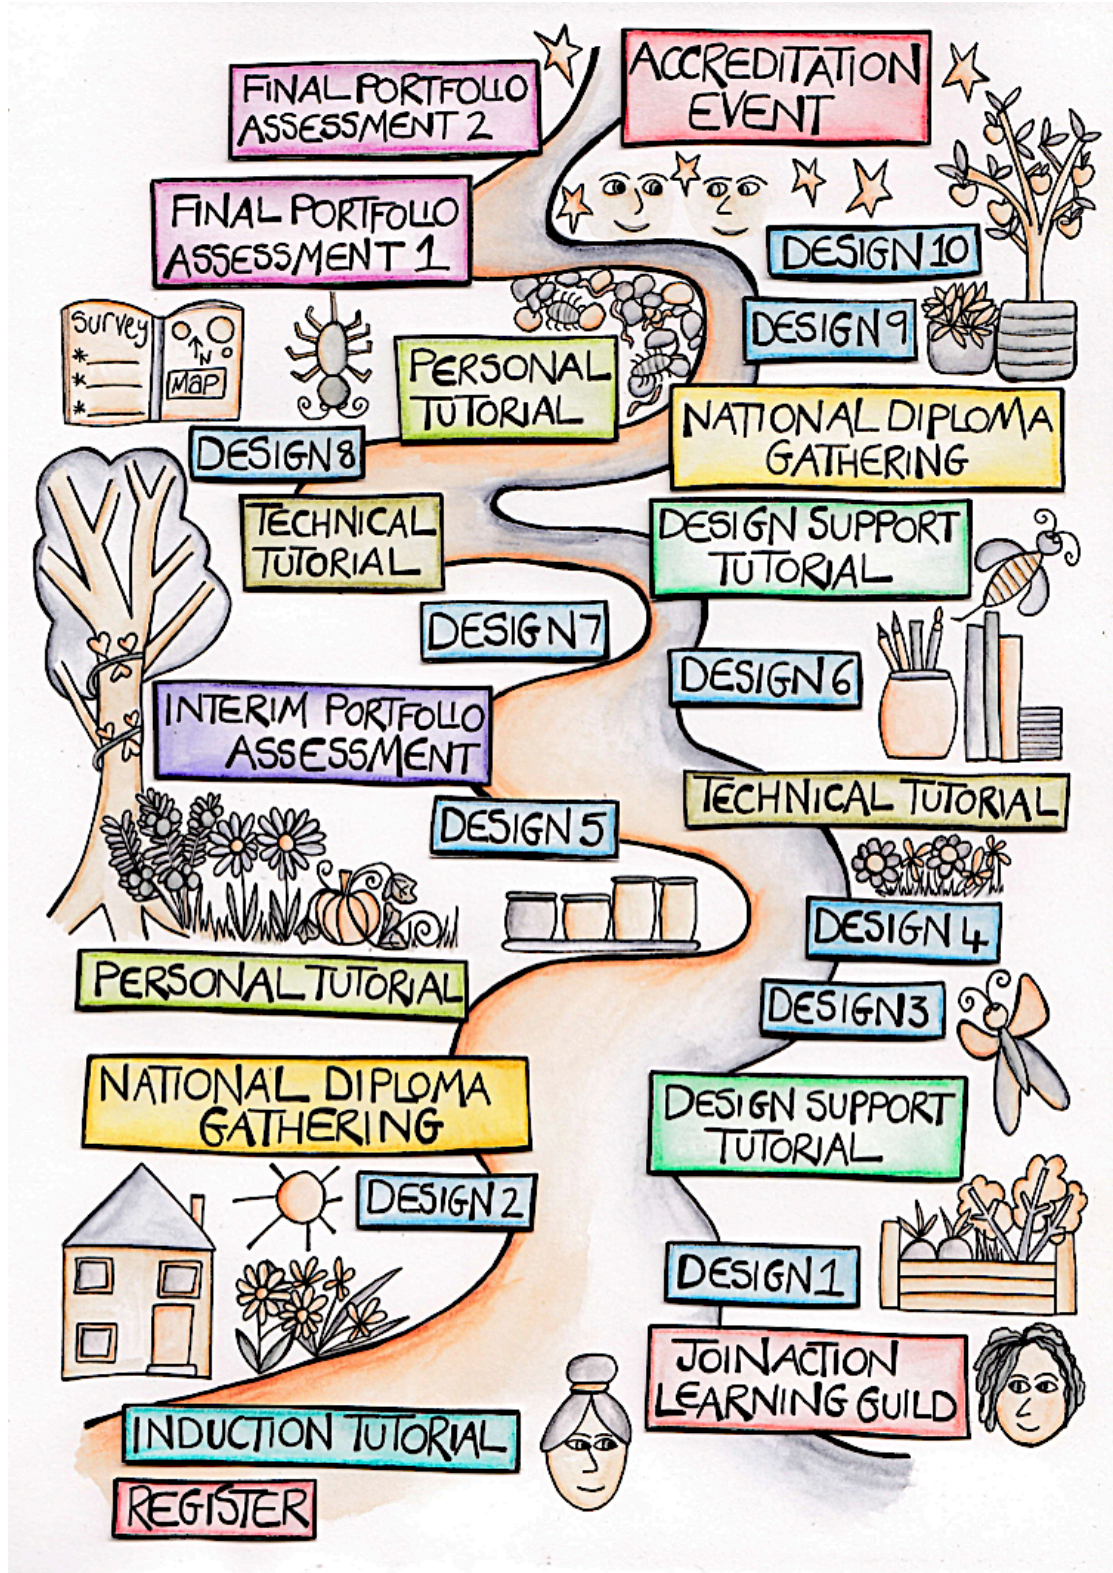 ACCREDITATION
EVENT
FINAL PORTFOLIO
ASSESSMENT 2
FINAL PORTFOLIO
ASSESSMENT 1
DESIGN 10
DESIGN 9
Survey
N
MAP
PERSONAL
TUTORIAL
NATIONAL DIPLOMA
GATHERING
DESIGN 8
TECHNICAL
TUTORIAL
DESIGN SUPPORT
TUTORIAL
DESIGN 7
DESIGN 6
INTERIM PORTFOLIO
ASSESSMENT
TECHNICAL TUTORIAL
DESIGN 5
DESIGN 4
PERSONAL TUTORIAL
DESIGN 3
NATIONAL DIPLOMA
GATHERING
DESIGN SUPPORT
TUTORIAL
DESIGN 2
DESIGN 1
JOIN ACTION
LEARNING GUILD
INDUCTION TUTORIAL
REGISTER